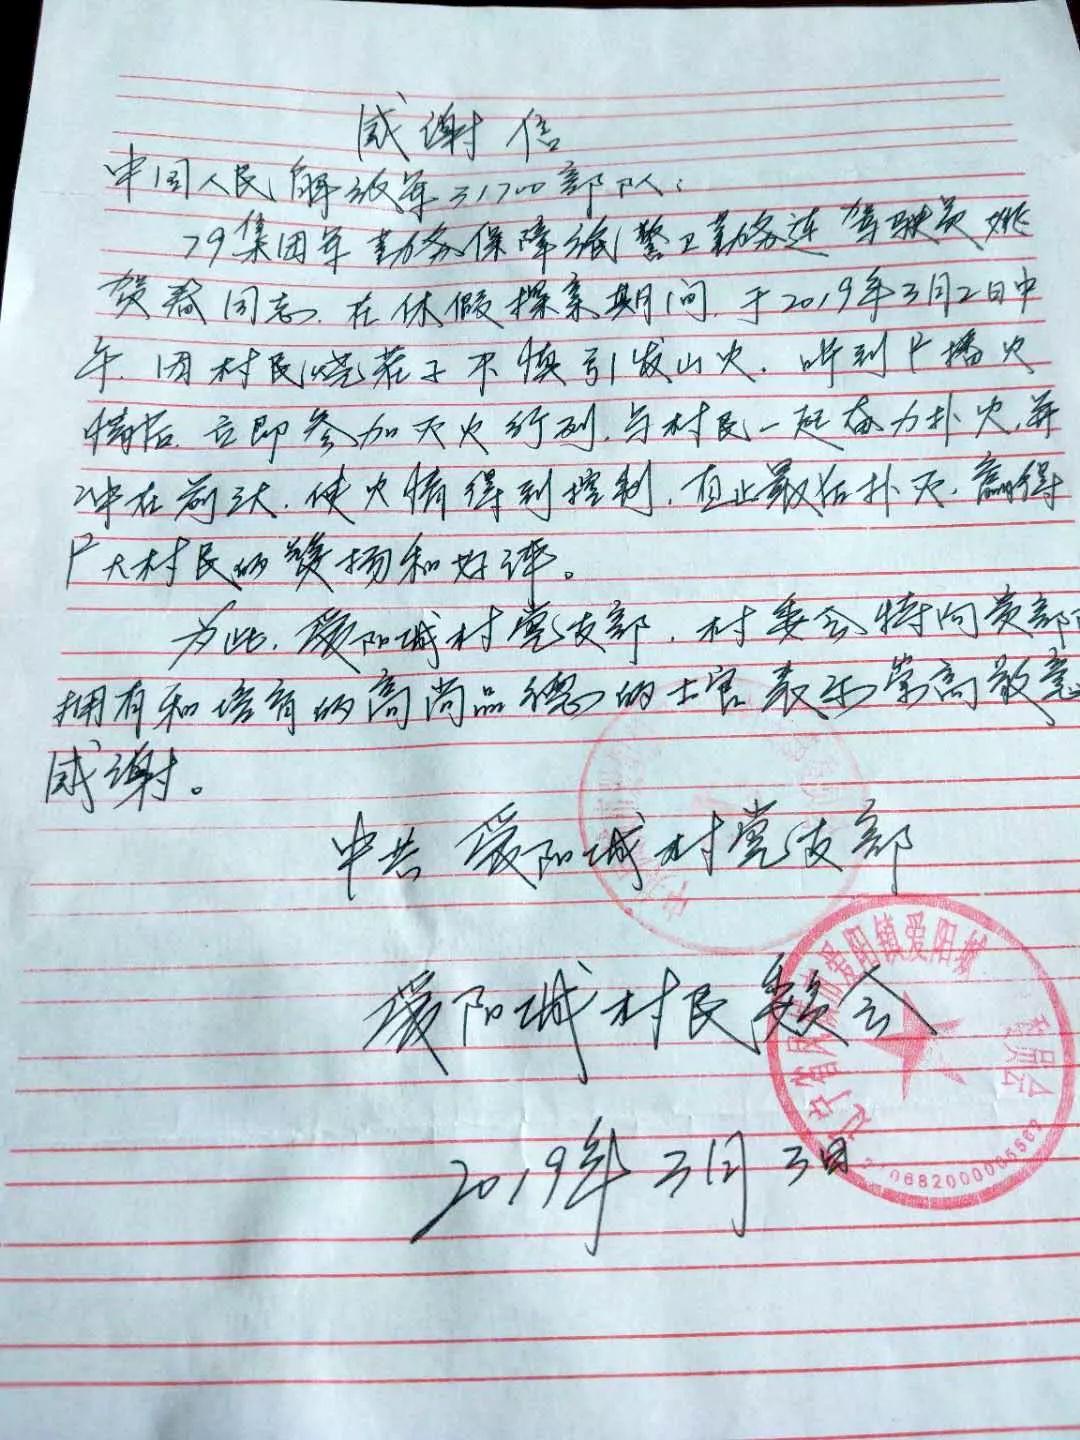 感谢信
中国人民解放军31700部队：
79集团军勤务保障旅警卫勤务连驾驶员姚
贺春同志，在休假探亲期间，于2019年3月2日中
午，因村民烧若子不慎引发山火，听到广播火
情后，立即参加灭火行列，与村民一起奋力扑火，并
冲在前头，使火情得到控制，直止最后扑灭，赢得
广大村民的赞扬和好评。
为此，爱阳城村党支部，村委会特向贵部队
拥有和培育的高尚品德的士官表示崇高敬意
感谢。
中共爱阳城村党支部
爱阳城村民委员会
2019年3月3日
辽宁省凤城市爱阳镇爱阳城
委员会
2106820000055